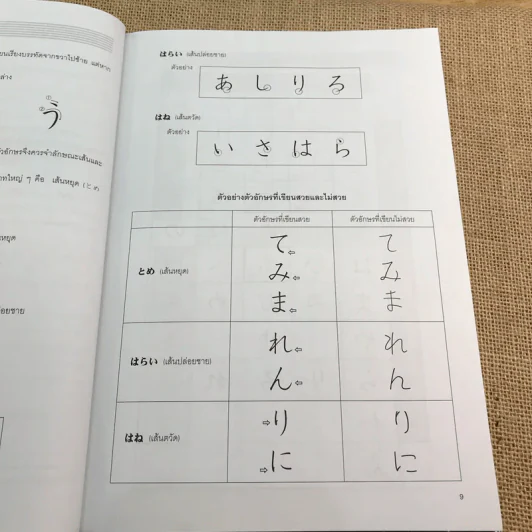 ยนเรียงบรรทัดจากขวาไปซ้าย แต่หาก
ล่าง
(1)
(2)
う
ตัวอักษรจึงควรจำลักษณะเส้นและ
ทใหญ่ ๆ คือ เส้นหยุด (とめ)
หยุด
ล่อยชาย
はらい (เส้นปล่อยชาย)
ตัวอย่าง
あ し り る
はね (เส้นตวัด)
ตัวอย่าง
い さ は ら
ตัวอย่างตัวอักษรที่เขียนสวยและไม่สวย
ตัวอักษรที่เขียนสวย ตัวอักษรที่เขียนไม่สวย
とめ (เส้นหยุด)
て⇦ て
み⇦ み
ま⇦ ま
はらい (เส้นปล่อยชาย)
れ⇦ れ
ん⇦ ん
はね (เส้นตวัด)
⇨り り
⇨に に
9